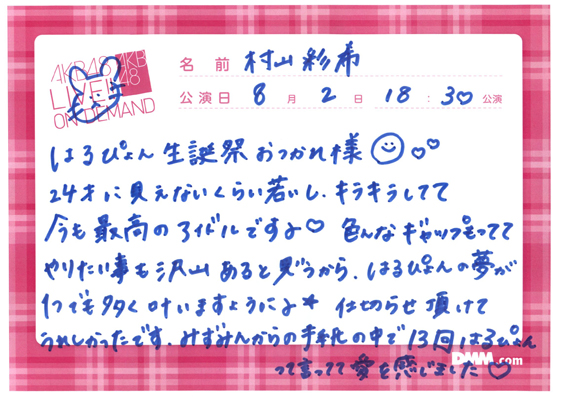 AKB48
LIVE!!
ON DEMAND
AKB
48
名前 村山彩希
公演日 8月2日 18:30公演
はるぴょん生誕祭おつかれ様
24才に見えないくらい若いし、キラキラしてて
今も最高のアイドルですよ♡ 色んなギャップもってて
やりたい事も沢山あると思うから、はるぴょんの夢が
1つでも多く叶いますようによ* 仕切らせ頂けて
うれしかったです。みずみんからの手紙の中で13回はるぴょん
って言ってて愛を感じました♡
DMM.com